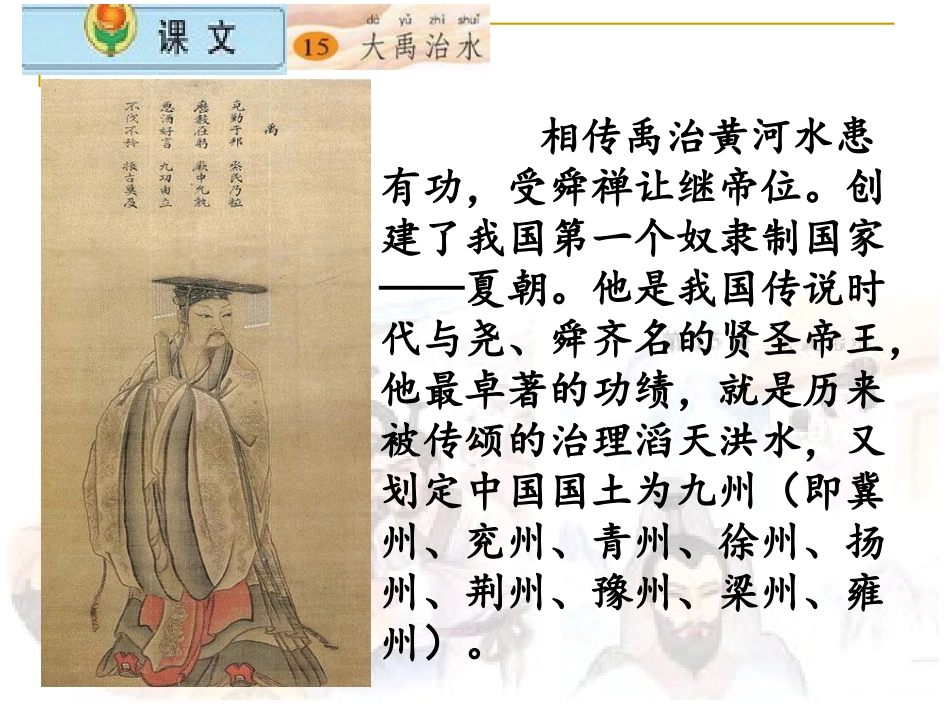 课文
dà yǔ zhì shuǐ
15 大禹治水
禹
克勤于邦 烝民乃粒
歷數在躬 厥中允執
惡酒好言 九功由立
不伐不矜 振古莫及
相传禹治黄河水患
有功，受舜禅让继帝位。创
建了我国第一个奴隶制国家
——夏朝。他是我国传说时
代与尧、舜齐名的贤圣帝王，
他最卓著的功绩，就是历来
被传颂的治理滔天洪水，又
划定中国国土为九州（即冀
州、兖州、青州、徐州、扬
州、荆州、豫州、梁州、雍
州）。